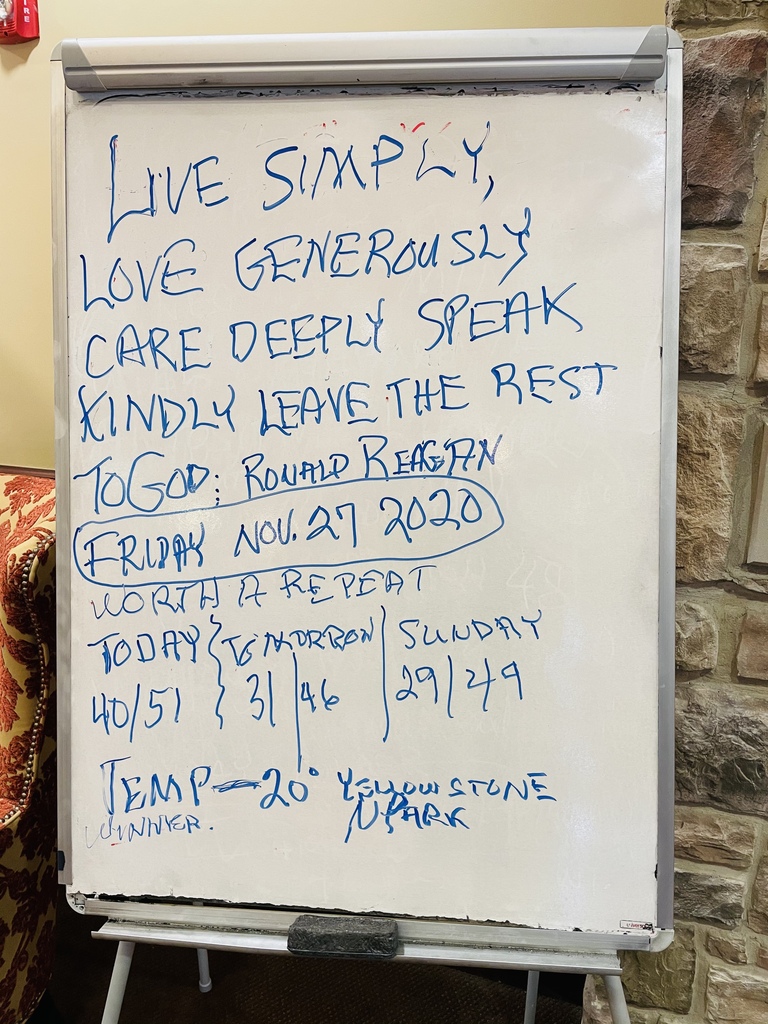 LIVE SIMPLY,
LOVE GENEROUSLY
CARE DEEPLY SPEAK
KINDLY LEAVE THE REST
TO GOD; RONALD REAGAN
FRIDAY NOV. 27 2020
WORTH A REPEAT
TODAY TOMORROW SUNDAY
40/51 31/46 29/49
TEMP -20° YELLOWSTONE
WINNER. N PARK